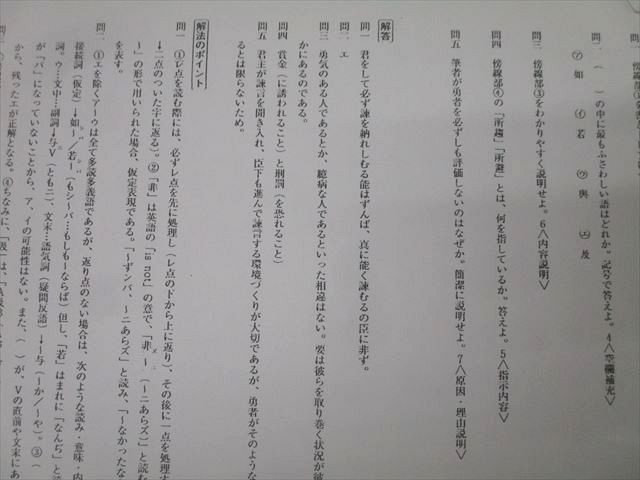 問二、（　）の中に最もふさわしい語はどれか。記号で答えよ。４〈空欄補充〉
㋐ 如 ㋑ 若 ㋒ 與 ㋓ 及
問三　傍線部③をわかりやすく説明せよ。６〈内容説明〉
問四　傍線部④の「所趨」「所避」とは、何を指しているか。答えよ。５〈指示内容〉
問五　筆者が勇者を必ずしも評価しないのはなぜか。簡潔に説明せよ。７〈原因・理由説明〉
解答
問一　君をして必ず諫を納れしむる能はずんば、真に能く諫むるの臣に非ず。
問二　エ
問三　勇気のある人であるとか、臆病な人であるといった相違はない。要は彼らを取り巻く状況が彼
かにあるのである。
問四　賞金（に誘われること）と刑罰（を恐れること）
問五　君主が諫言を聞き入れ、臣下も進んで諫言する環境づくりが大切であるが、勇者がそのような
るとは限らないため。
解法のポイント
問一　①レ点を読む際には、必ずレ点を先に処理し（レ点の下から上に返り）、その後に一点を処理す
→二点のついた字に返る）。②「非」は英語の「is not」の意で、「非レ～（～ニあらズ）」と読む
～」の形で用いられた場合、仮定表現である。「～ずンバ、～ニあらズ」と読み、「～なかったな
を表す。
問二　①エを除くア～ウは全て多読多義語であるが、返り点のない場合は、次のような読み・意味・内
接続詞（仮定）→如～／若～（もシ～バ…もしも～ならば）但し、「若」はまれに「なんぢ」と読
詞。ウ…文中…副詞→与Ｖ（ともニ）、文末…語気詞（疑問反語）→～与（～か／～や）。③（
が「バ」になっていないことから、ア、イの可能性はない。また、（　）が、Ｖの直前や文末にあ
から、残ったエが正解となる。④ちなみに、「及」は、